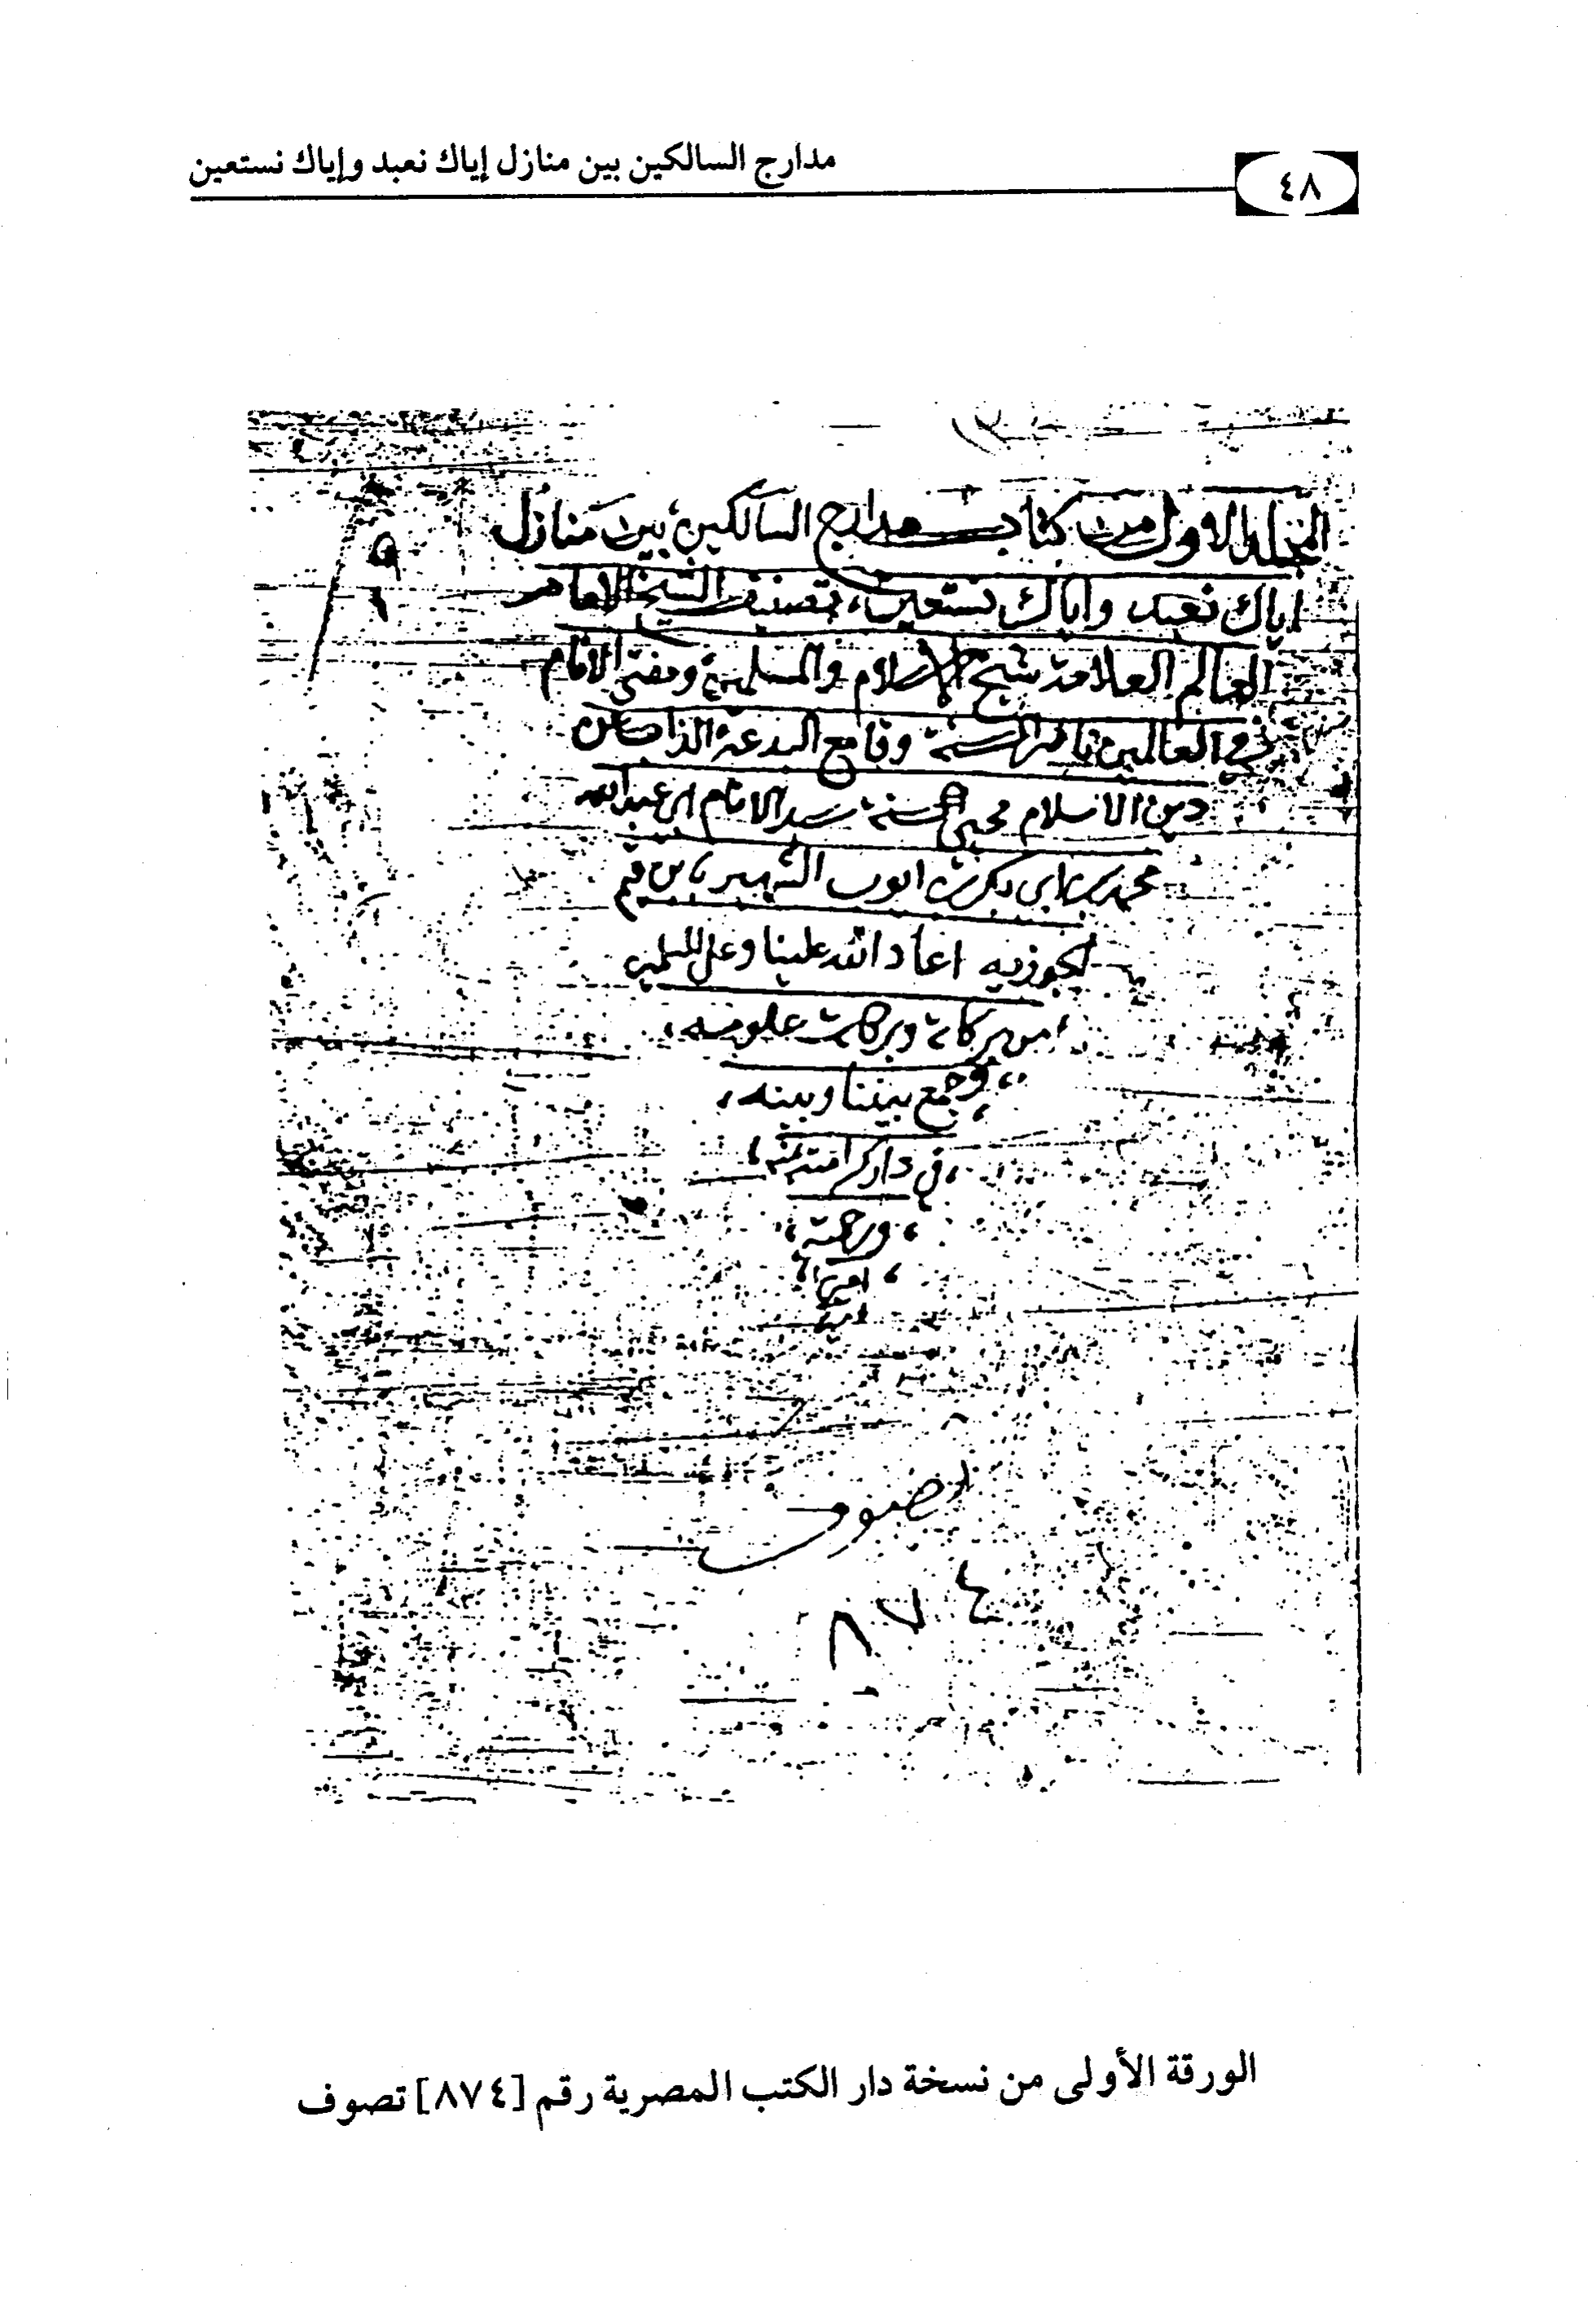 مدارج السالكين بين منازل إياك نعبد وإياك نستعين
٤٨
المجلد الاول من كتاب مدارج السالكين بين منازل
اياك نعبد واياك نستعين، تصنيف الشيخ الامام
العالم العلامة شيخ الاسلام والمسلمين ومفتي الانام
في العالمين ناصر السنة وقامع البدعة الذاب عن
دين الاسلام محيي السنة سيد الانام ابي عبدالله
محمد بن ابي بكر بن ايوب الشهير بابن قيم
الجوزيه اعاد الله علينا وعلى المسلمين
من بركاته وبركات علومه،
وجمع بيننا وبينه،
في دار كرامته بمنه
ورحمته،
امين
امين
تصوف
٨٧٤
الورقة الأولى من نسخة دار الكتب المصرية رقم [٨٧٤] تصوف